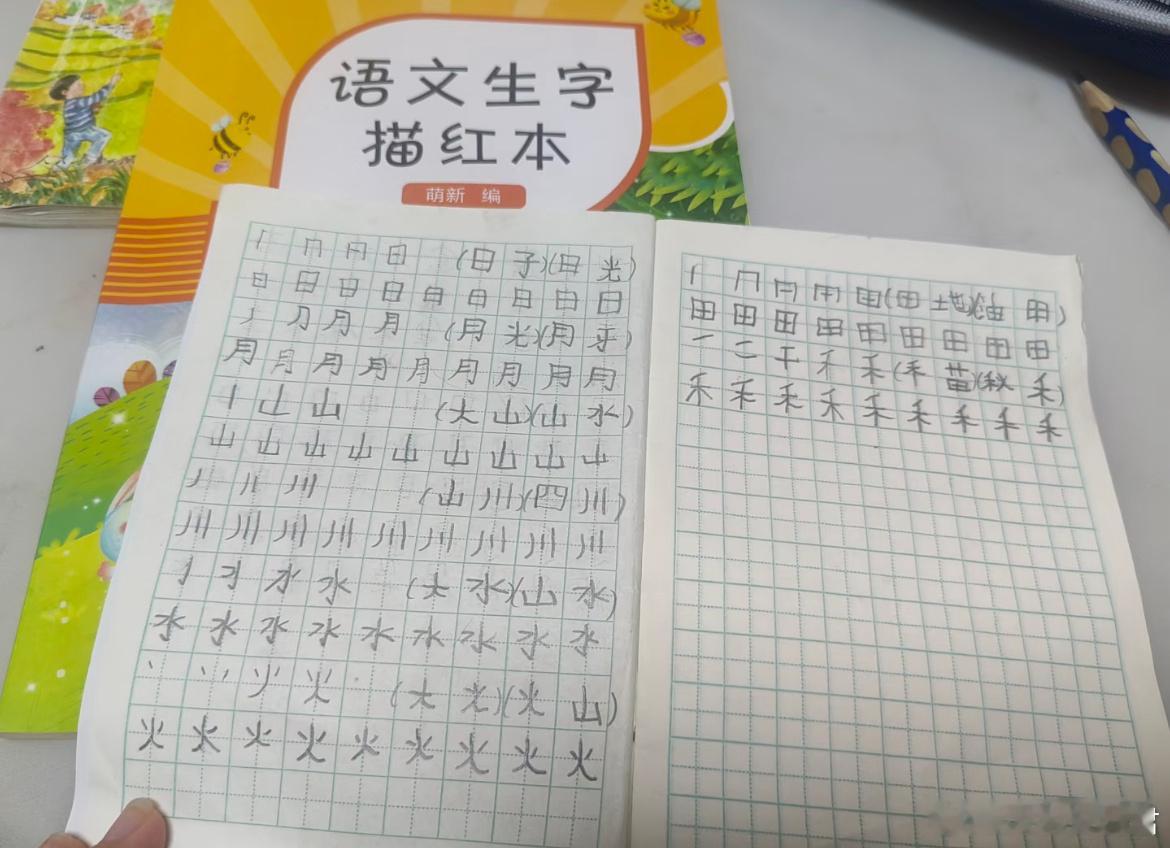 语文生字
描红本
萌新 编
丨 冂 日 日 (日 子)(日 光)
日 日 日 日 日 日 日 日 日
丿 刀 月 月 (月 光)(月 牙)
月 月 月 月 月 月 月 月 月
丨 山 山 (大 山)(山 水)
山 山 山 山 山 山 山 山 山
丿 川 川 (山 川)(四 川)
川 川 川 川 川 川 川 川 川
亅 水 水 (大 水)(山 水)
水 水 水 水 水 水 水 水 水
丶 丷 火 火 (大 火)(火 山)
火 火 火 火 火 火 火 火 火
丨 冂 田 (田 地)(油 田)
田 田 田 田 田 田 田 田 田
一 二 千 禾 禾 (禾 苗)(秋 禾)
禾 禾 禾 禾 禾 禾 禾 禾 禾